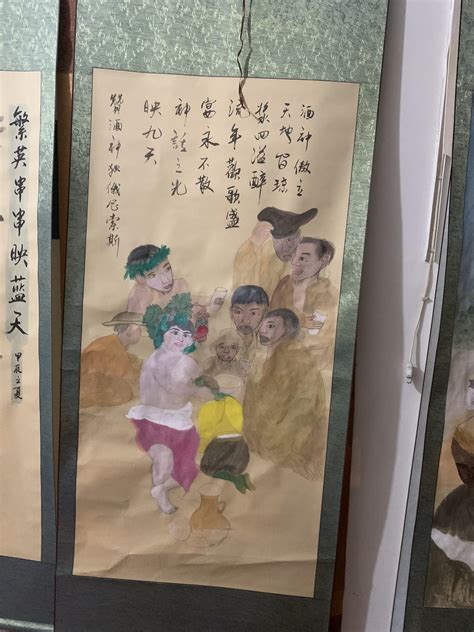 酒神傲立
天地间琼
浆四溢醉
流年歡歌盛
宴永不散
神話之光
映九天
贊酒神狄俄尼索斯
繁英串串映蓝天
甲辰立夏